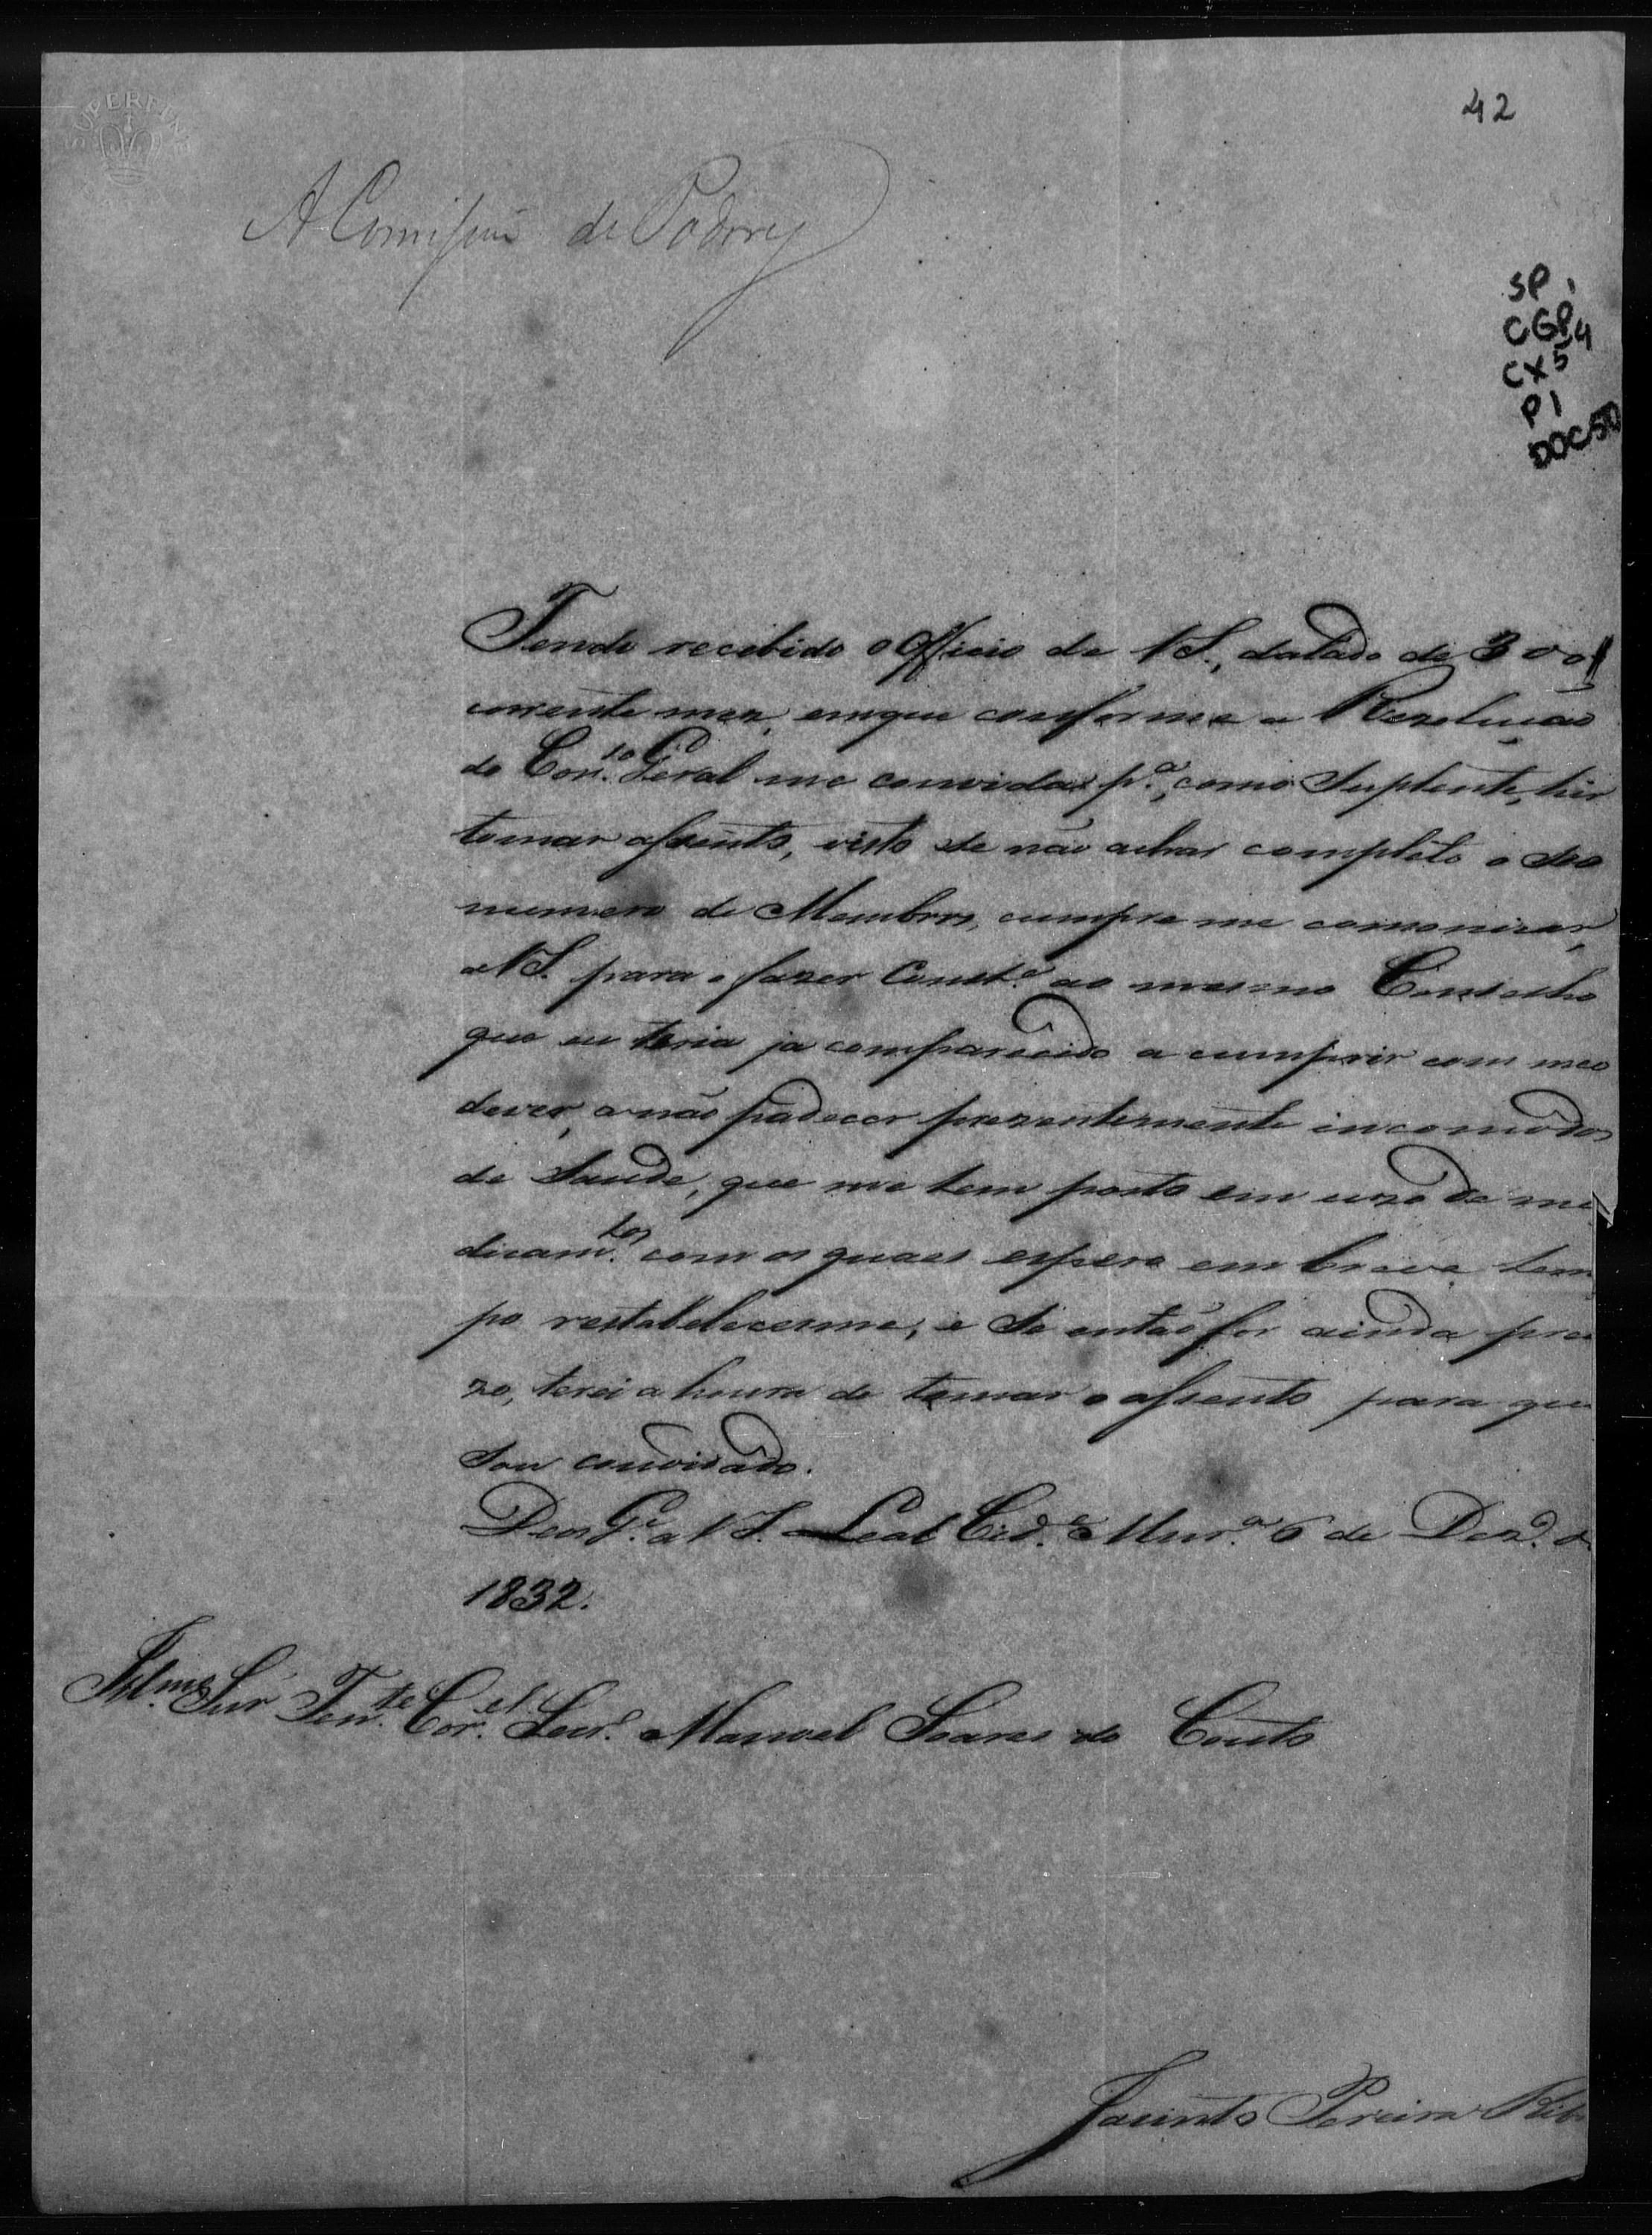 SUPERFINE
42
A Comissão de Poderes
SP 1
CGP 4
CX 5
P 1
DOC 50
Tendo recebido o Officio de V S., datado de 3 do
corrente mez, emque conforme a Rezolução
do Con.so Geral me convida p.a, como Suplente, hir
tomar assento, visto se não achar completo o seo
numero de Membros, cumpre me comonicar,
a V S. para o fazer Const.e ao mesmo Conselho
que eu teria ja comparecido a cumprir com meo
dever, a não padecer prezentemente incomodos
de Saude, que me tem posto em uzo de me
dicam.tos com os quaes espero em breve tem
po restabelecerme, e Se então for ainda preci
zo, terei a honra de tomar o assento para que
Sou convidado.
Deos G.e a V S. Leal Cid.e Mar.a 6 de Dez.o d
1832.
Ill.mo Snr Ten.te Cor.el Secr.o Manoel Soares do Couto
Jacinto Pereira Rib